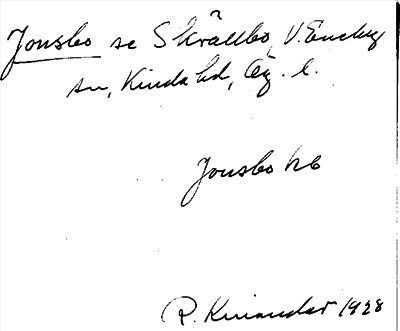 Jonsbo se Skrällbo, V. Eneby
sn, Kinda hd, Ög. l.
Jonsbo hb
R. Kinander 1928